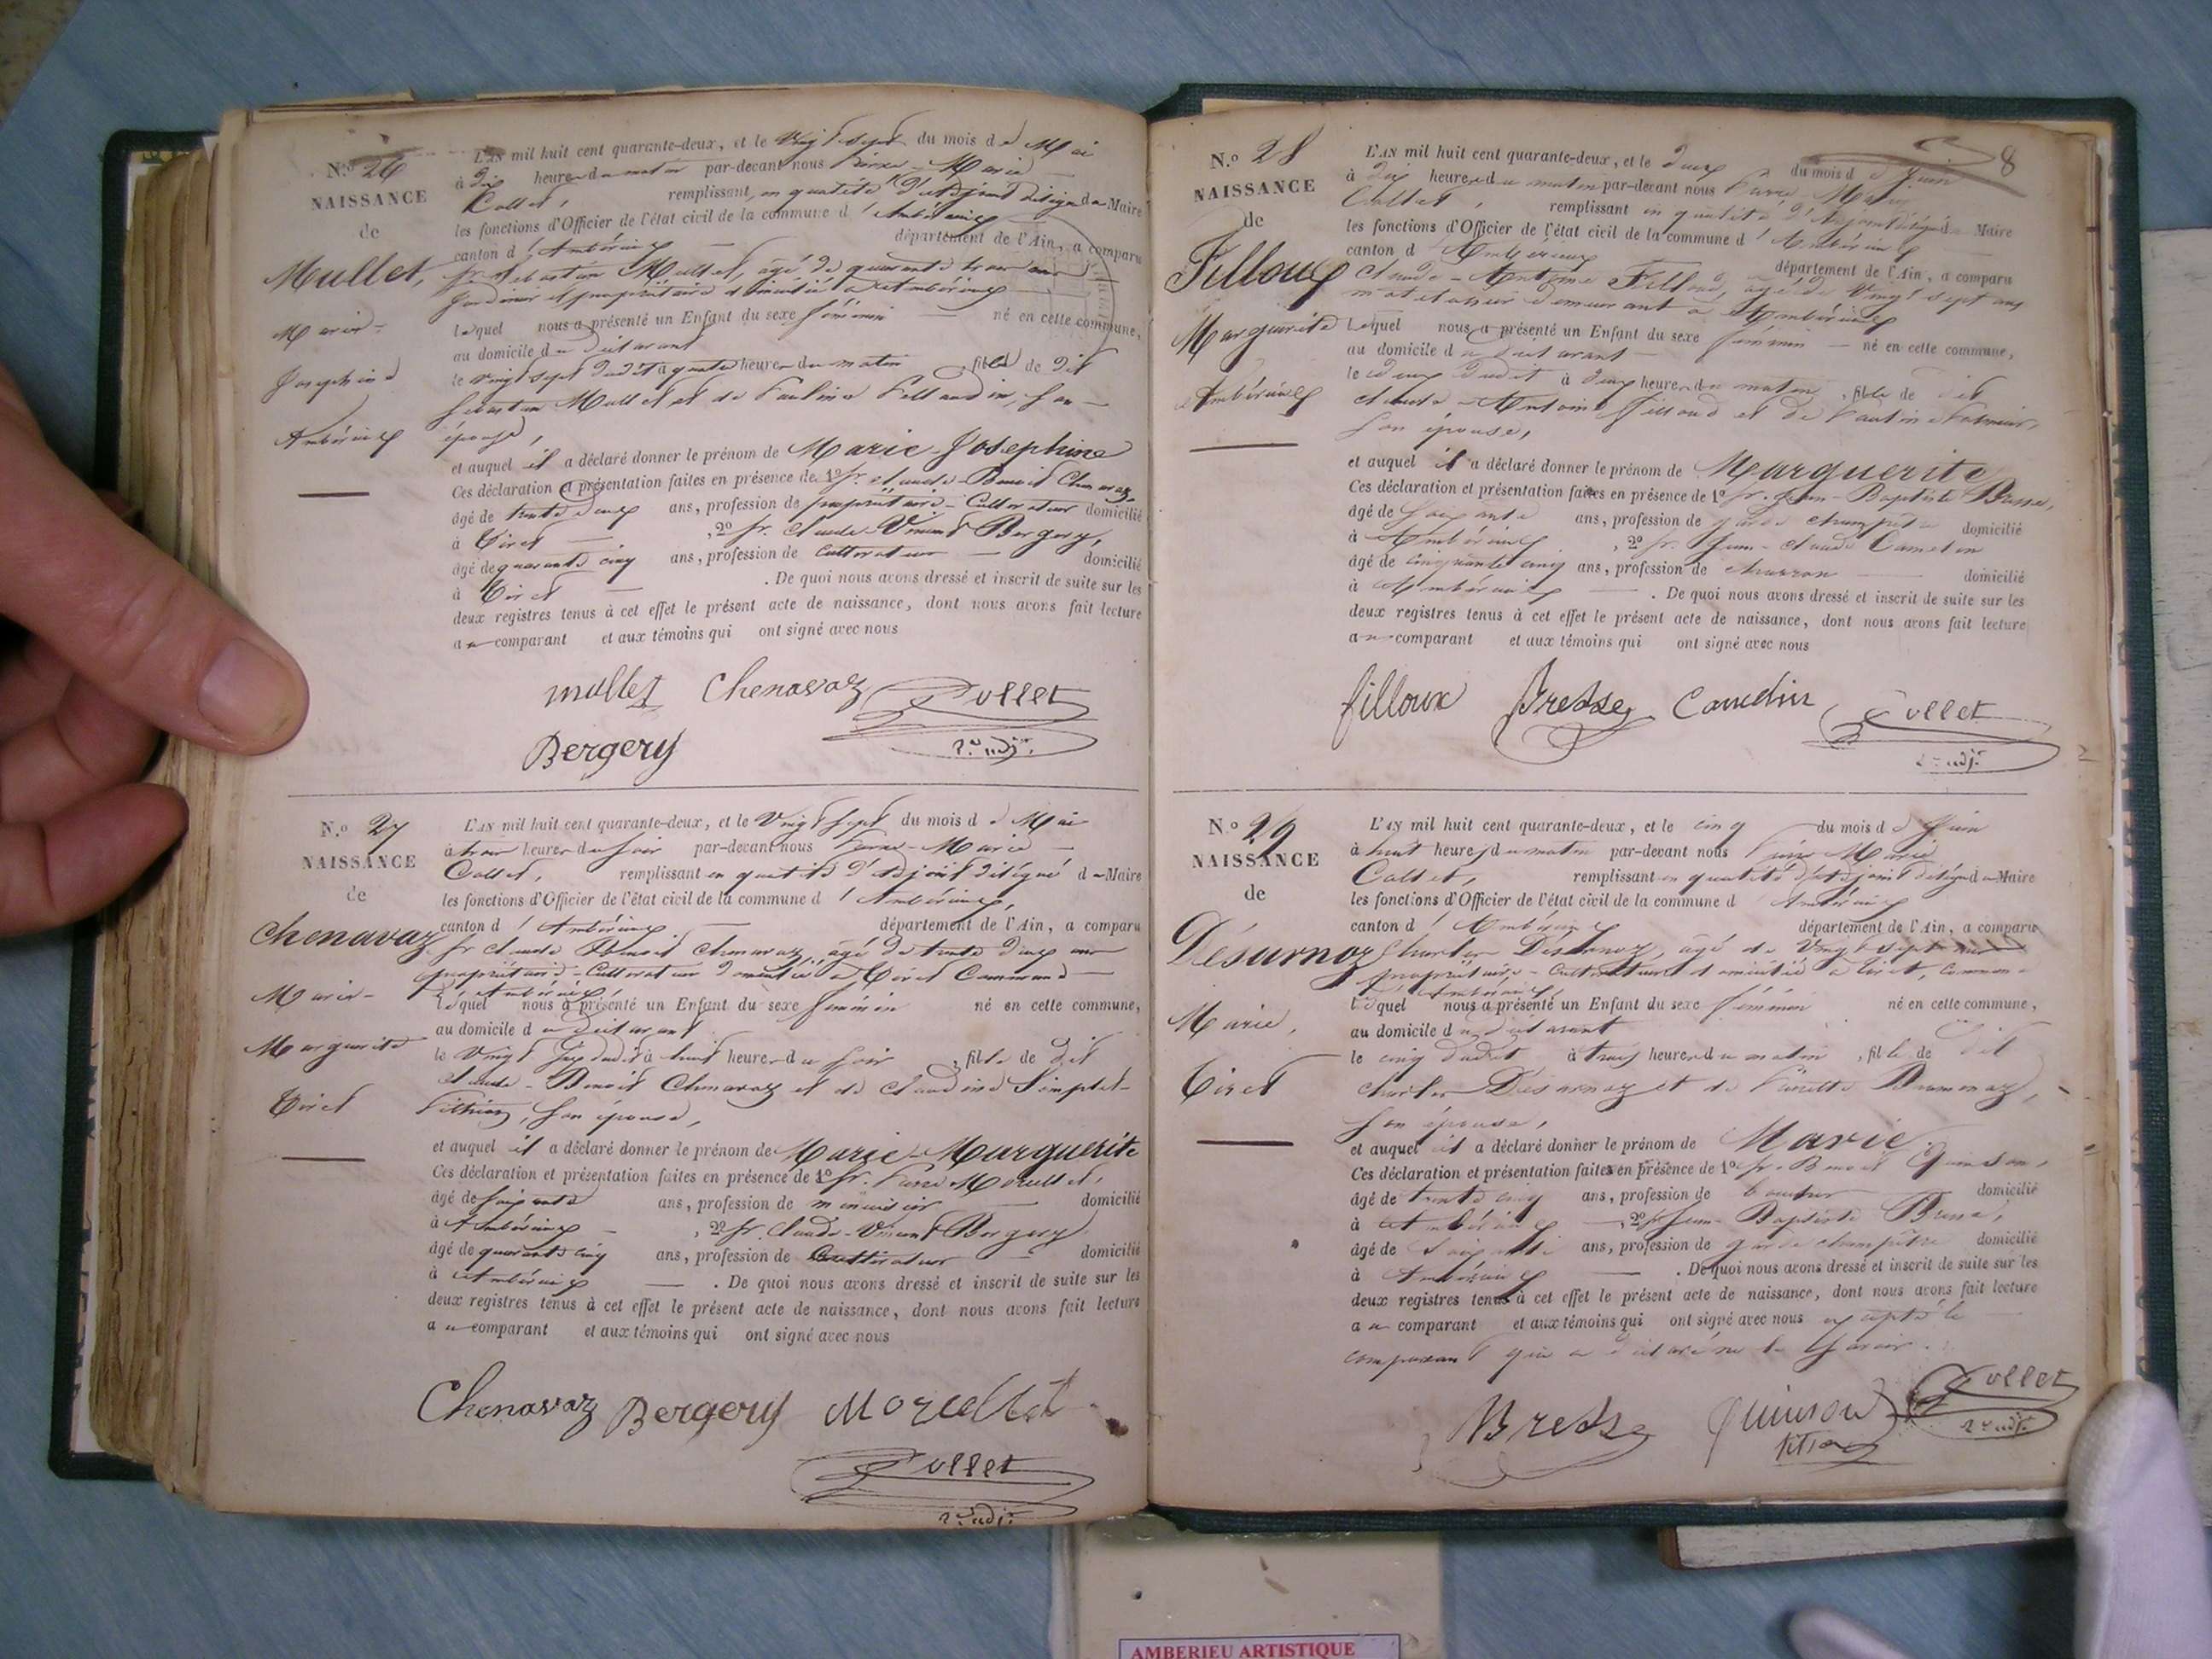 N.º 26
NAISSANCE
de
Mullet,
Marie-
Josephine
Ambérieux
L'AN mil huit cent quarante-deux, et le Vingt sept du mois de Mai
à dix heures du matin par-devant nous Pierre-Marie
Collet, remplissant en qualité d'adjoint délégué du Maire
les fonctions d'Officier de l'état civil de la commune d'Ambérieux
canton d'Ambérieux département de l'Ain, a comparu
sr. Sebastien Mullet, âgé de quarante trois ans
jardinier et propriétaire domicilié à Ambérieux
lequel nous a présenté un Enfant du sexe féminin né en cette commune,
au domicile du déclarant
le vingt sept dudit à quatre heures du matin, fille de dit
Sébastien Mullet et de Pauline , son
épouse,
et auquel il a déclaré donner le prénom de Marie-Josephine
Ces déclaration et présentation faites en présence de 1º sr. Claude-Benoit Chenavaz,
âgé de trente deux ans, profession de propriétaire-Cultivateur domicilié
à Tiret, 2º sr. Claude-Vincent Bergery,
âgé de quarante cinq ans, profession de Cultivateur domicilié
à Tiret. De quoi nous avons dressé et inscrit de suite sur les
deux registres tenus à cet effet le présent acte de naissance, dont nous avons fait lecture
au comparant et aux témoins qui ont signé avec nous
mullet Chenavaz Collet
Bergery 2e adjt.
N.º 27
NAISSANCE
de
Chenavaz
Marie-
Marguerite
Tiret
L'AN mil huit cent quarante-deux, et le Vingt sept du mois de Mai
à trois heures du soir par-devant nous Pierre-Marie
Collet, remplissant en qualité d'adjoint délégué du Maire
les fonctions d'Officier de l'état civil de la commune d'Ambérieux,
canton d'Ambérieux département de l'Ain, a comparu
sr Claude Benoit Chenavaz, âgé de trente deux ans
propriétaire-Cultivateur domicilié à Tiret Commune
d'Ambérieux,
lequel nous a présenté un Enfant du sexe féminin né en cette commune,
au domicile du déclarant
le Vingt six dudit à huit heures du soir, fille de dit
Claude-Benoit Chenavaz et de Claudine
, son épouse,
et auquel il a déclaré donner le prénom de Marie-Marguerite
Ces déclaration et présentation faites en présence de 1º sr. Pierre Morellet,
âgé de soixante ans, profession de menuisier domicilié
à Ambérieux, 2º sr. Claude-Vincent Bergery
âgé de quarante cinq ans, profession de Cultivateur domicilié
à Ambérieux. De quoi nous avons dressé et inscrit de suite sur les
deux registres tenus à cet effet le présent acte de naissance, dont nous avons fait lecture
au comparant et aux témoins qui ont signé avec nous
Chenavaz Bergery Morellet
Collet
2e adjt.
8
N.º 28
NAISSANCE
de
Filloux
Marguerite
Ambérieux
L'AN mil huit cent quarante-deux, et le deux du mois de Juin
à dix heures du matin par-devant nous Pierre Marie
Collet, remplissant en qualité d'adjoint délégué du Maire
les fonctions d'Officier de l'état civil de la commune d'Ambérieux
canton d'Ambérieux département de l'Ain, a comparu
Claude-Antoine Filloud, âgé de Vingt sept ans
matelassier demeurant à Ambérieux
lequel nous a présenté un Enfant du sexe féminin né en cette commune,
au domicile du déclarant
le deux dudit à deux heures du matin, fille de dit
Claude-Antoine Filloud et de Pauline
son épouse,
et auquel il a déclaré donner le prénom de Marguerite
Ces déclaration et présentation faites en présence de 1º sr. Jean-Baptiste Bresse,
âgé de soixante ans, profession de garde champêtre domicilié
à Ambérieux, 2º sr. Jean-Claude Caudin
âgé de cinquante cinq ans, profession de charron domicilié
à Ambérieux. De quoi nous avons dressé et inscrit de suite sur les
deux registres tenus à cet effet le présent acte de naissance, dont nous avons fait lecture
au comparant et aux témoins qui ont signé avec nous
filloux Bresse Caudin Collet
2e adjt.
N.º 29
NAISSANCE
de
Désurnoz
Marie,
Tiret
L'AN mil huit cent quarante-deux, et le cinq du mois de Juin
à huit heures du matin par-devant nous Pierre Marie
Collet, remplissant en qualité d'adjoint délégué du Maire
les fonctions d'Officier de l'état civil de la commune d'Ambérieux
canton d'Ambérieux département de l'Ain, a comparu
Charles Désurnoz, âgé de Vingt sept ans
propriétaire-Cultivateur domicilié à Tiret, commune
d'Ambérieux
lequel nous a présenté un Enfant du sexe féminin né en cette commune,
au domicile du déclarant
le cinq dudit à trois heures du matin, fille de dit
Charles Désurnoz et de
son épouse,
et auquel il a déclaré donner le prénom de Marie
Ces déclaration et présentation faites en présence de 1º sr. Benoit Quinson,
âgé de trente cinq ans, profession de boucher domicilié
à Ambérieux, 2º sr Jean-Baptiste Bresse,
âgé de soixante ans, profession de garde champêtre domicilié
à Ambérieux. De quoi nous avons dressé et inscrit de suite sur les
deux registres tenus à cet effet le présent acte de naissance, dont nous avons fait lecture
au comparant et aux témoins qui ont signé avec nous excepté le
comparant qui a déclaré ne le savoir.
Bresse Quinson Collet
2e adjt.
AMBERIEU ARTISTIQUE